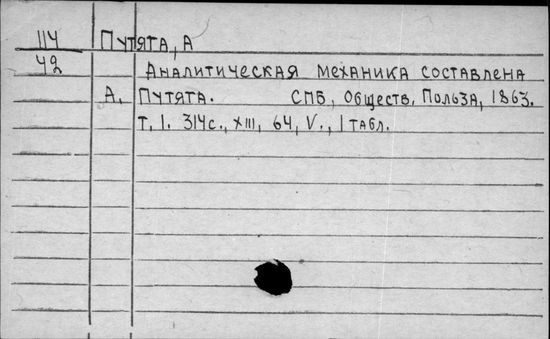 114 Путята, А
42
Аналитическая механика составлена
А. Путята. СПб, Обществ. Польза, 1863.
Т. 1. 314с., XIII, 64, V., 1 табл.